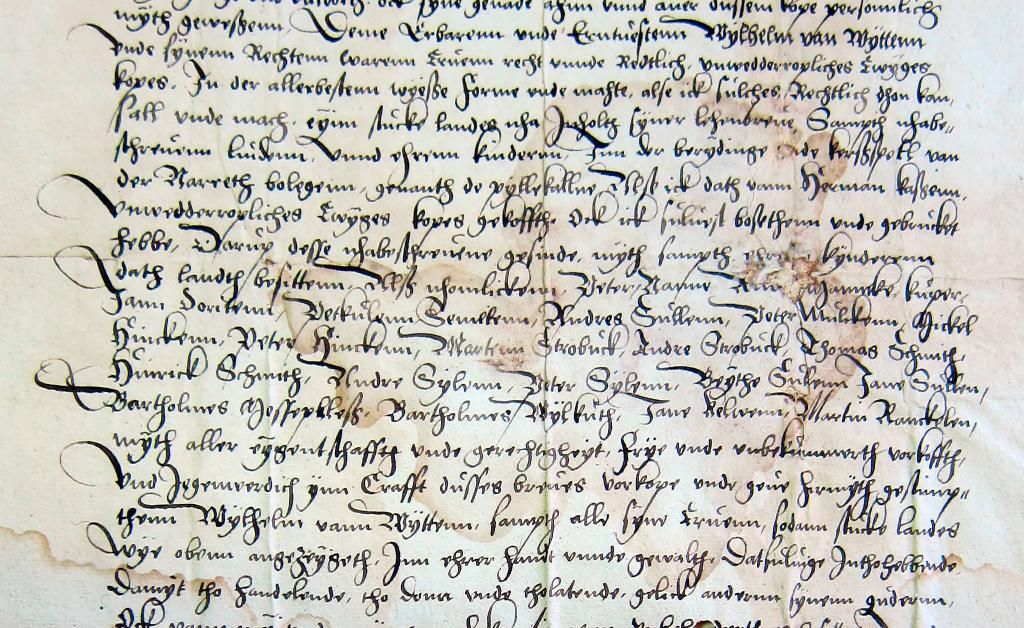 syne genade ahnn vnnd auer dussem kope personnlich
myth gewesßenn, Deme Erbarenn vnde Erntuestenn Wylhelm van Wyttenn
vnde synenn Rechtenn warenn Eruenn recht vnnde Redtlich, vnwedderropliches Ewyges
kopes. Jn der allerbestenn wyeße Forme vnde mahte, alse ick sulches Rechtlich dhon kan,
sall vnde mach, eynn stucke landes nha Jnholtz syner lehenbreue, Sampth nhabe=
schreuenn ludenn, Vnnd ehrenn kinderenn, Jnn der berydinge vnde kerßspell van
der Narreth bolegenn, genanth de pyllekallne, Alse ick dath vann Herman kaßenn,
vnwedderropliches Ewyges kopes gekoffth, Ock ick suluest bosethenn vnde gebrucket
hebbe, Darup desse nhabeschreuene gesinde, myth sampth ehren kynderenn
dath landth besittenn, Alß nhomlickenn, Peter Narme Mannicke kuper,
Jann Doritenn, Andres Sullenn, Peter Wulckenn, Mickel
Hinckenn, Peter Hinckenn, Martenn Strobuck, Andre Strobuck Thomas Schmith,
Hinrick Schmith, Andre Sylenn, Peter Sylenn, Jane Sullen,
Bartholmes Bartholmes Wylkuth, Jane Martin Ranckelen,
myth aller eygentschafftt vnde gerechtigheyt, Frye vnde vnbekummerth vorkoffth,
Vnd Jegenwerdich ynn Crafft dusses breues vorkope vnde geue hirmyth gestimp=
thenn Wylhelm vann Wyttenn, sampth alle syne Eruenn, sodann stucke landes
Wye obenn angezeygeth, Jnn ehrer handt vnnde gewalth, Datsuluige Jnthohebbende,
Damyt tho handelende, tho donn vnde tholatende, gelick anderenn synenn guderenn,